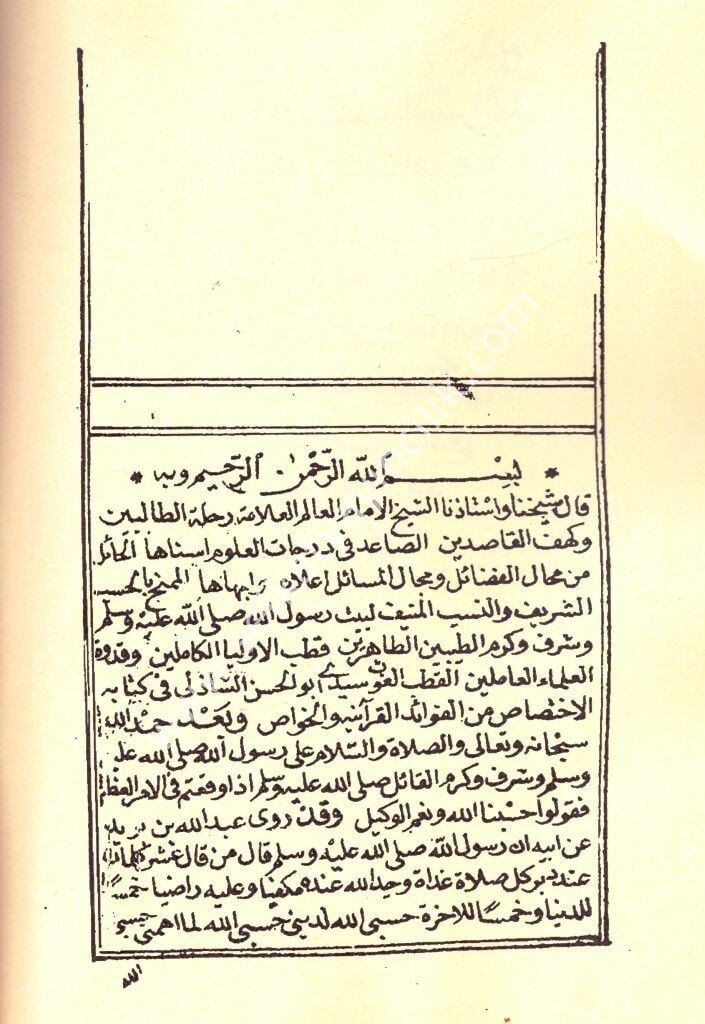 * بسم الله الرحمن الرحيم وبه *
قال شيخنا واستاذنا الشيخ الامام العالم العلامة رحلة الطالبين
وكهف القاصدين الصاعد في درجات العلوم اسناها الحائل
من محال الفضائل ومحال المسائل اعلاه وابهاها الممنح بالحسب
الشريف والنسب المنيف لبيت رسول الله صلى الله عليه وسلم
وشرف وكرم الطيبين الطاهرين قطب الاوليا الكاملين وقدوة
العلماء العاملين القطب الغوث سيدي ابو الحسن الشاذلى في كتابه
الاختصاص من الفوائد القرآنيه والخواص وبعد حمد الله
سبحانه وتعالى والصلاة والسلام على رسول الله صلى الله عليه
وسلم وشرف وكرم القائل صلى الله عليه وسلم اذا وقعتم في الامر العظيم
فقولوا حسبنا الله ونعم الوكيل وقد روى عبد الله بن بريد
عن ابيه ان رسول الله صلى الله عليه وسلم قال من قال عشر كلمات
عند دبر كل صلاة غداة وجد الله عندهم مكفيا وعليه راضيا خمسًا
للدنيا وخمسًا للاخرة حسبى الله لدينى حسبى الله لما اهمنى حسبى
الله